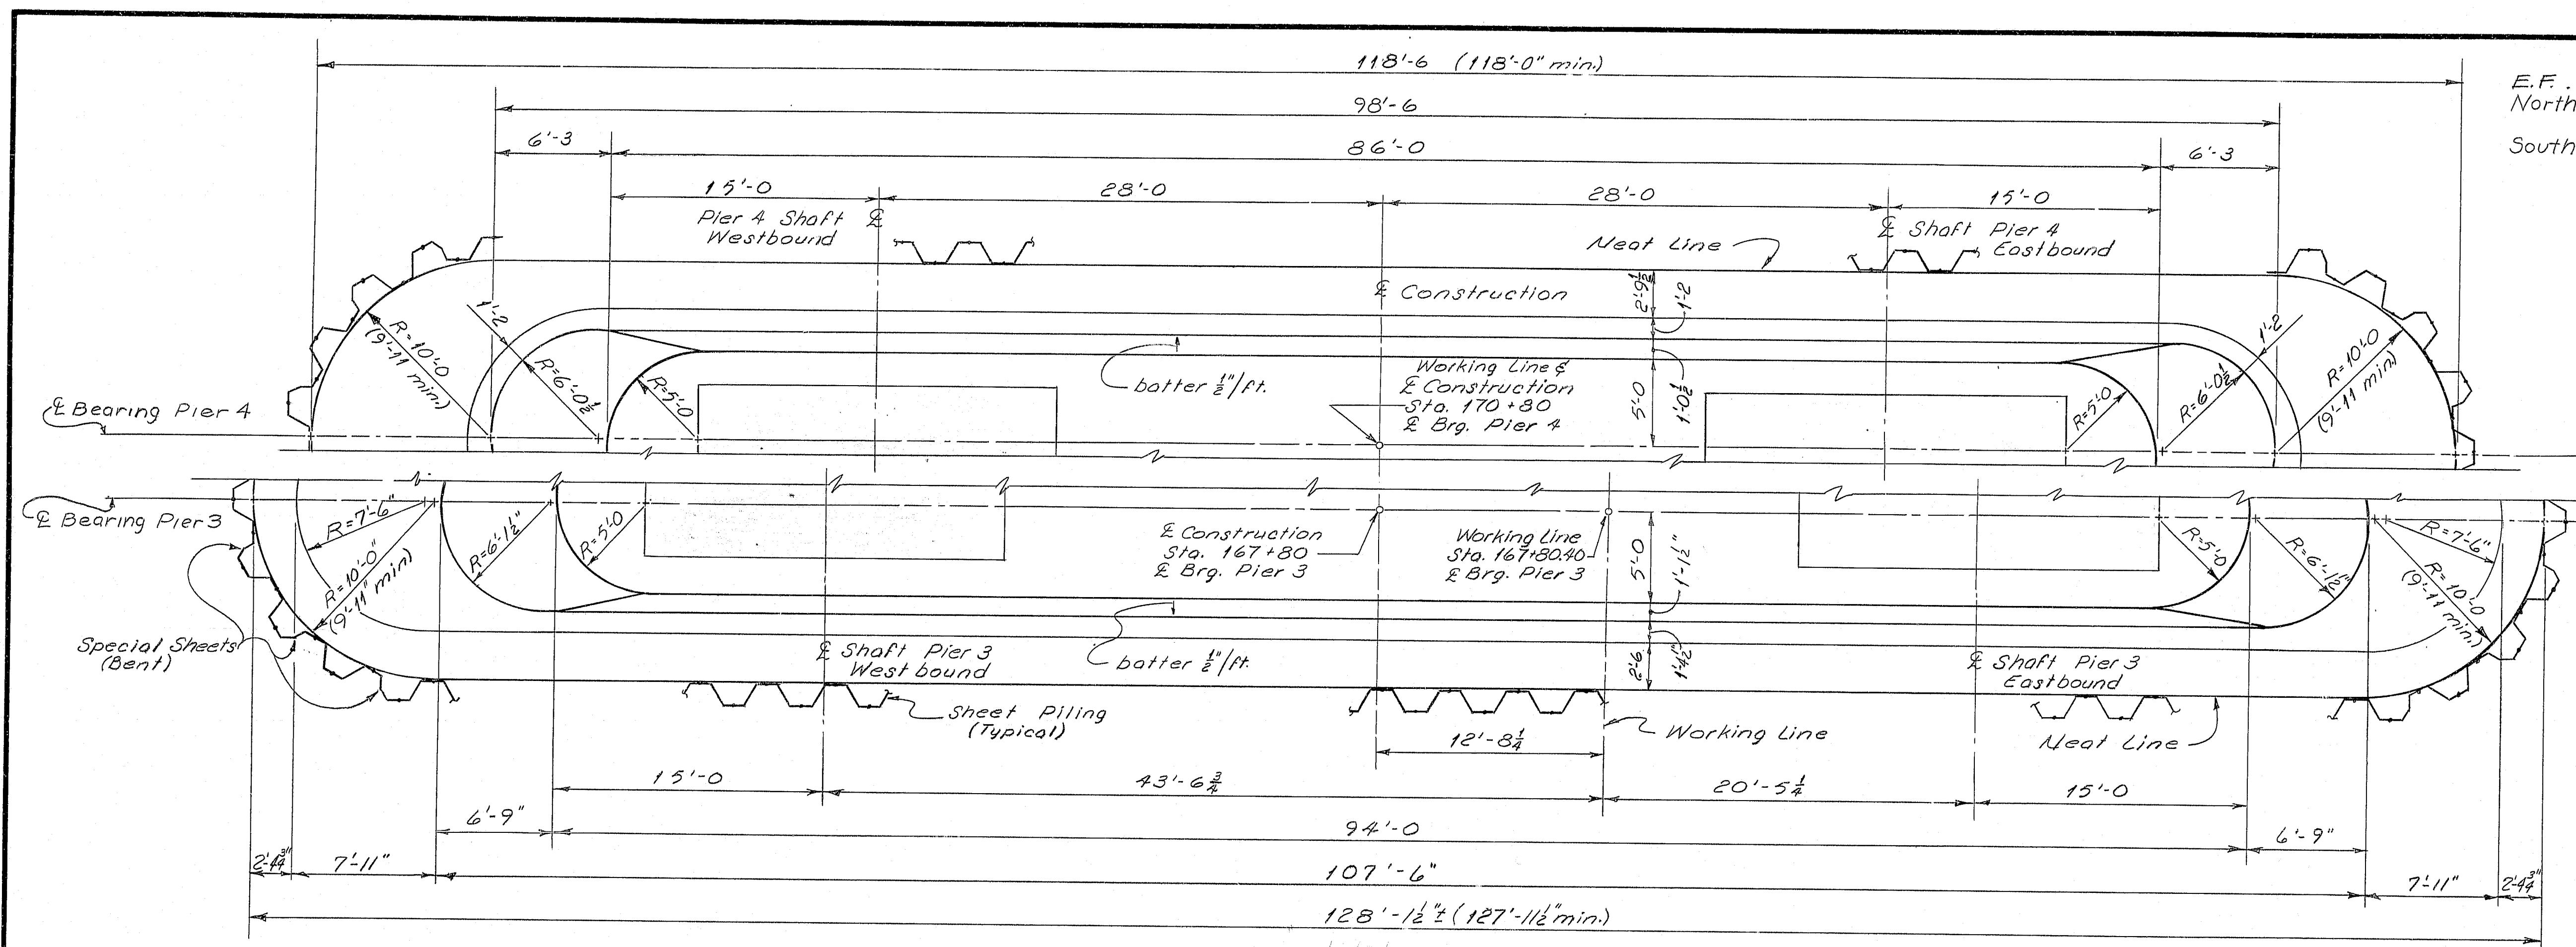 118'-6 (118'-0" min.)
E.F. .
North
South
98'-6
6'-3
86'-0
6'-3
15'-0
28'-0
28'-0
15'-0
Pier 4 Shaft ℄
Westbound
℄ Shaft Pier 4
Eastbound
Neat Line
℄ Construction
2'-9½
1'-2
1'-2
R=10'-0
(9'-11 min.)
R=6'-0½
R=5'-0
batter ½"/ft.
Working Line &
℄ Construction
Sta. 170+80
℄ Brg. Pier 4
5'-0
1'-0½
1'-2
R=5'-0
R=6'-0½
R=10'-0
(9'-11 min.)
℄ Bearing Pier 4
℄ Bearing Pier 3
R=7'-6"
R=10'-0"
(9'-11" min)
R=6'-1½"
R=5'-0
℄ Construction
Sta. 167+80
℄ Brg. Pier 3
Working Line
Sta. 167+80.40
℄ Brg. Pier 3
5'-0
1'-1½"
R=5'-0
R=6'-1½"
R=7'-6"
R=10'-0
(9'-11 min.)
Special Sheets
(Bent)
℄ Shaft Pier 3
Westbound
batter ½"/ft.
2'-6
1'-4½"
℄ Shaft Pier 3
Eastbound
Sheet Piling
(Typical)
12'-8¼
Working Line
Neat Line
15'-0
43'-6¾
20'-5¼
15'-0
6'-9"
94'-0
6'-9"
2'-4¾"
7'-11"
107'-6"
7'-11"
2'-4¾"
128'-1½"± (127'-11½"min.)